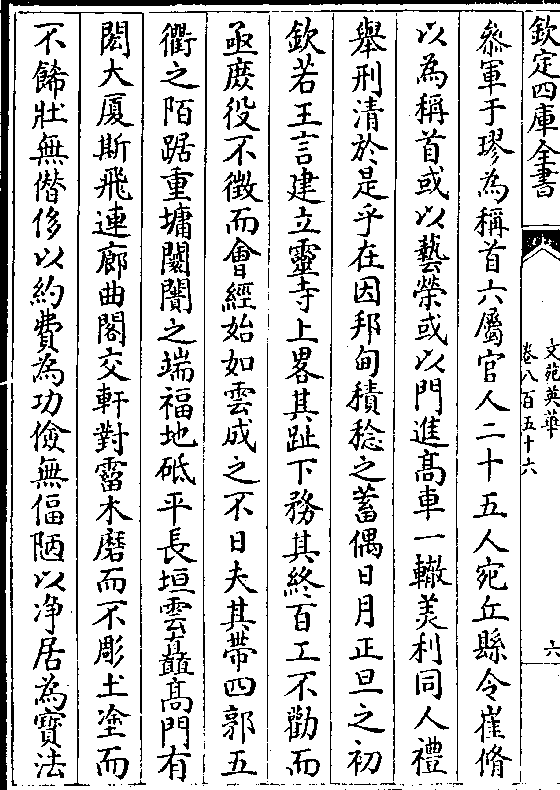 欽定四庫全書
文苑英華
卷八百五十六
六
叅軍于璆為稱首六屬官人二十五人宛丘縣令崔脩
以為稱首或以藝榮或以門進髙車一轍美利同人禮
舉刑清於是乎在因邦甸積稔之蓄偶日月正旦之初
欽若王言建立靈寺上畧其趾下務其終百工不勸而
亟庶役不徵而㑹經始如雲成之不日夫其帶四郭五
衢之陌踞重墉闤闠之端福地砥平長垣雲矗髙門有
閎大厦斯飛連廊曲閣交軒對霤木磨而不彫土塗而
不餙壯無僣侈以約費為功儉無偪陋以净居為寳法